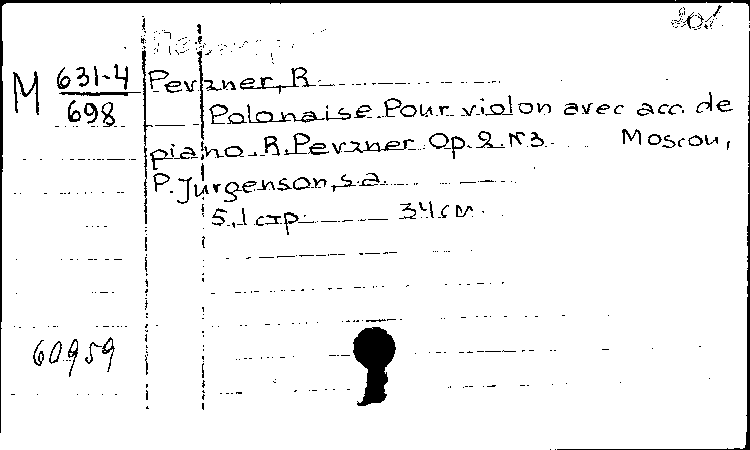 201
M 631-4
698
Pevzner, R
Polonaise. Pour violon avec acc. de
piano. R. Pevzner Op. 2. N3 Moscou,
P. Jurgenson, s.a.
5,1 стр. 34 см.
60959